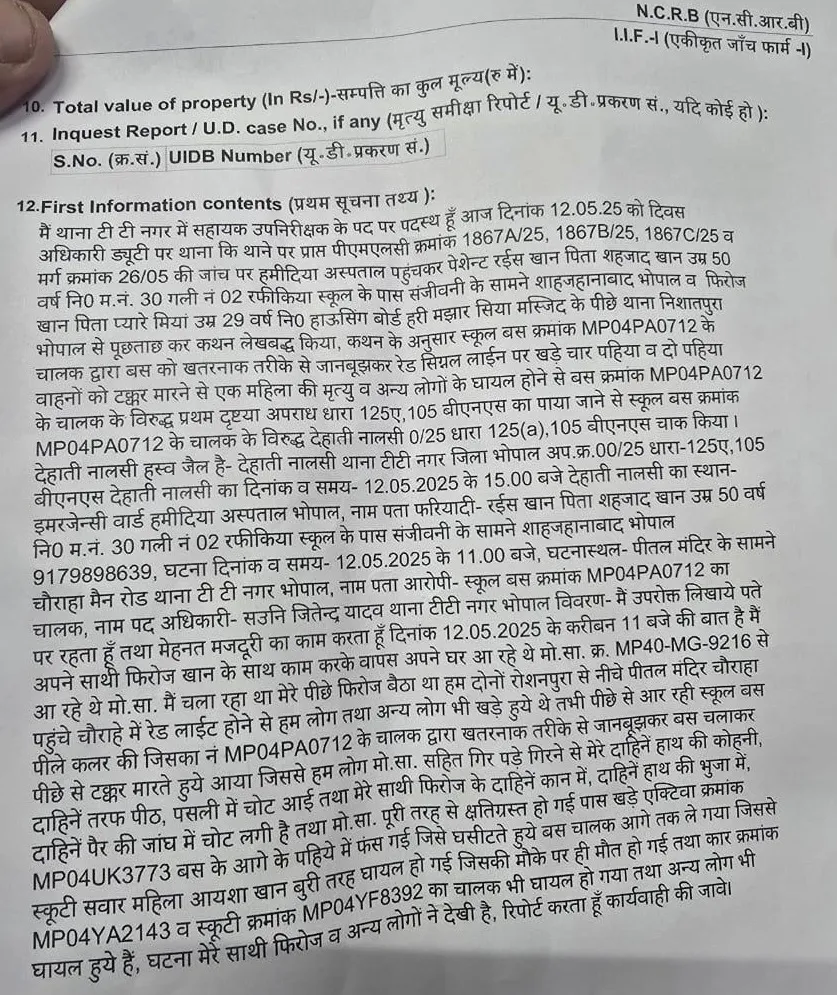 N.C.R.B (एन.सी.आर.बी)
I.I.F.-I (एकीकृत जाँच फार्म -I)
10. Total value of property (In Rs/-)-सम्पत्ति का कुल मूल्य(रु में):
11. Inquest Report / U.D. case No., if any (मृत्यु समीक्षा रिपोर्ट / यू.डी.प्रकरण सं., यदि कोई हो ):
S.No. (क्र.सं.) UIDB Number (यू.डी.प्रकरण सं.)
12.First Information contents (प्रथम सूचना तथ्य ):
मैं थाना टी टी नगर में सहायक उपनिरीक्षक के पद पर पदस्थ हूँ आज दिनांक 12.05.25 को दिवस
अधिकारी ड्यूटी पर थाना कि थाने पर प्राप्त पीएमएलसी क्रमांक 1867A/25, 1867B/25, 1867C/25 व
मर्ग क्रमांक 26/05 की जांच पर हमीदिया अस्पताल पहुंचकर पेशेन्ट रईस खान पिता शहजाद खान उम्र 50
वर्ष नि0 म.नं. 30 गली नं 02 रफीकिया स्कूल के पास संजीवनी के सामने शाहजहानाबाद भोपाल व फिरोज
खान पिता प्यारे मियां उम्र 29 वर्ष नि0 हाऊसिंग बोर्ड हरी मझार सिया मस्जिद के पीछे थाना निशातपुरा
भोपाल से पूछताछ कर कथन लेखबद्ध किया, कथन के अनुसार स्कूल बस क्रमांक MP04PA0712 के
चालक द्वारा बस को खतरनाक तरीके से जानबूझकर रेड सिग्नल लाईन पर खड़े चार पहिया व दो पहिया
वाहनों को टक्कर मारने से एक महिला की मृत्यु व अन्य लोगों के घायल होने से बस क्रमांक MP04PA0712
के चालक के विरुद्ध प्रथम दृष्टया अपराध धारा 125ए,105 बीएनएस का पाया जाने से स्कूल बस क्रमांक
MP04PA0712 के चालक के विरुद्ध देहाती नालसी 0/25 धारा 125(a),105 बीएनएस चाक किया।
देहाती नालसी हस्व जैल है- देहाती नालसी थाना टीटी नगर जिला भोपाल अप.क्र.00/25 धारा-125ए,105
बीएनएस देहाती नालसी का दिनांक व समय- 12.05.2025 के 15.00 बजे देहाती नालसी का स्थान-
इमरजेन्सी वार्ड हमीदिया अस्पताल भोपाल, नाम पता फरियादी- रईस खान पिता शहजाद खान उम्र 50 वर्ष
नि0 म.नं. 30 गली नं 02 रफीकिया स्कूल के पास संजीवनी के सामने शाहजहानाबाद भोपाल
9179898639, घटना दिनांक व समय- 12.05.2025 के 11.00 बजे, घटनास्थल- पीतल मंदिर के सामने
चौराहा मैन रोड थाना टी टी नगर भोपाल, नाम पता आरोपी- स्कूल बस क्रमांक MP04PA0712 का
चालक, नाम पद अधिकारी- सउनि जितेन्द्र यादव थाना टीटी नगर भोपाल विवरण- मैं उपरोक्त लिखाये पते
पर रहता हूँ तथा मेहनत मजदूरी का काम करता हूँ दिनांक 12.05.2025 के करीबन 11 बजे की बात है मैं
अपने साथी फिरोज खान के साथ काम करके वापस अपने घर आ रहे थे मो.सा. क्र. MP40-MG-9216 से
आ रहे थे मो.सा. मैं चला रहा था मेरे पीछे फिरोज बैठा था हम दोनों रोशनपुरा से नीचे पीतल मंदिर चौराहा
पहुंचे चौराहे में रेड लाईट होने से हम लोग तथा अन्य लोग भी खड़े हुये थे तभी पीछे से आ रही स्कूल बस
पीले कलर की जिसका नं MP04PA0712 के चालक द्वारा खतरनाक तरीके से जानबूझकर बस चलाकर
पीछे से टक्कर मारते हुये आया जिससे हम लोग मो.सा. सहित गिर पड़े गिरने से मेरे दाहिनें हाथ की कोहनी,
दाहिनें तरफ पीठ, पसली में चोट आई तथा मेरे साथी फिरोज के दाहिनें कान में, दाहिनें हाथ की भुजा में,
दाहिनें पैर की जांघ में चोट लगी है तथा मो.सा. पूरी तरह से क्षतिग्रस्त हो गई पास खड़े एक्टिवा क्रमांक
MP04UK3773 बस के आगे के पहिये में फंस गई जिसे घसीटते हुये बस चालक आगे तक ले गया जिससे
स्कूटी सवार महिला आयशा खान बुरी तरह घायल हो गई जिसकी मौके पर ही मौत हो गई तथा कार क्रमांक
MP04YA2143 व स्कूटी क्रमांक MP04YF8392 का चालक भी घायल हो गया तथा अन्य लोग भी
घायल हुये हैं, घटना मेरे साथी फिरोज व अन्य लोगों ने देखी है, रिपोर्ट करता हूँ कार्यवाही की जावे।